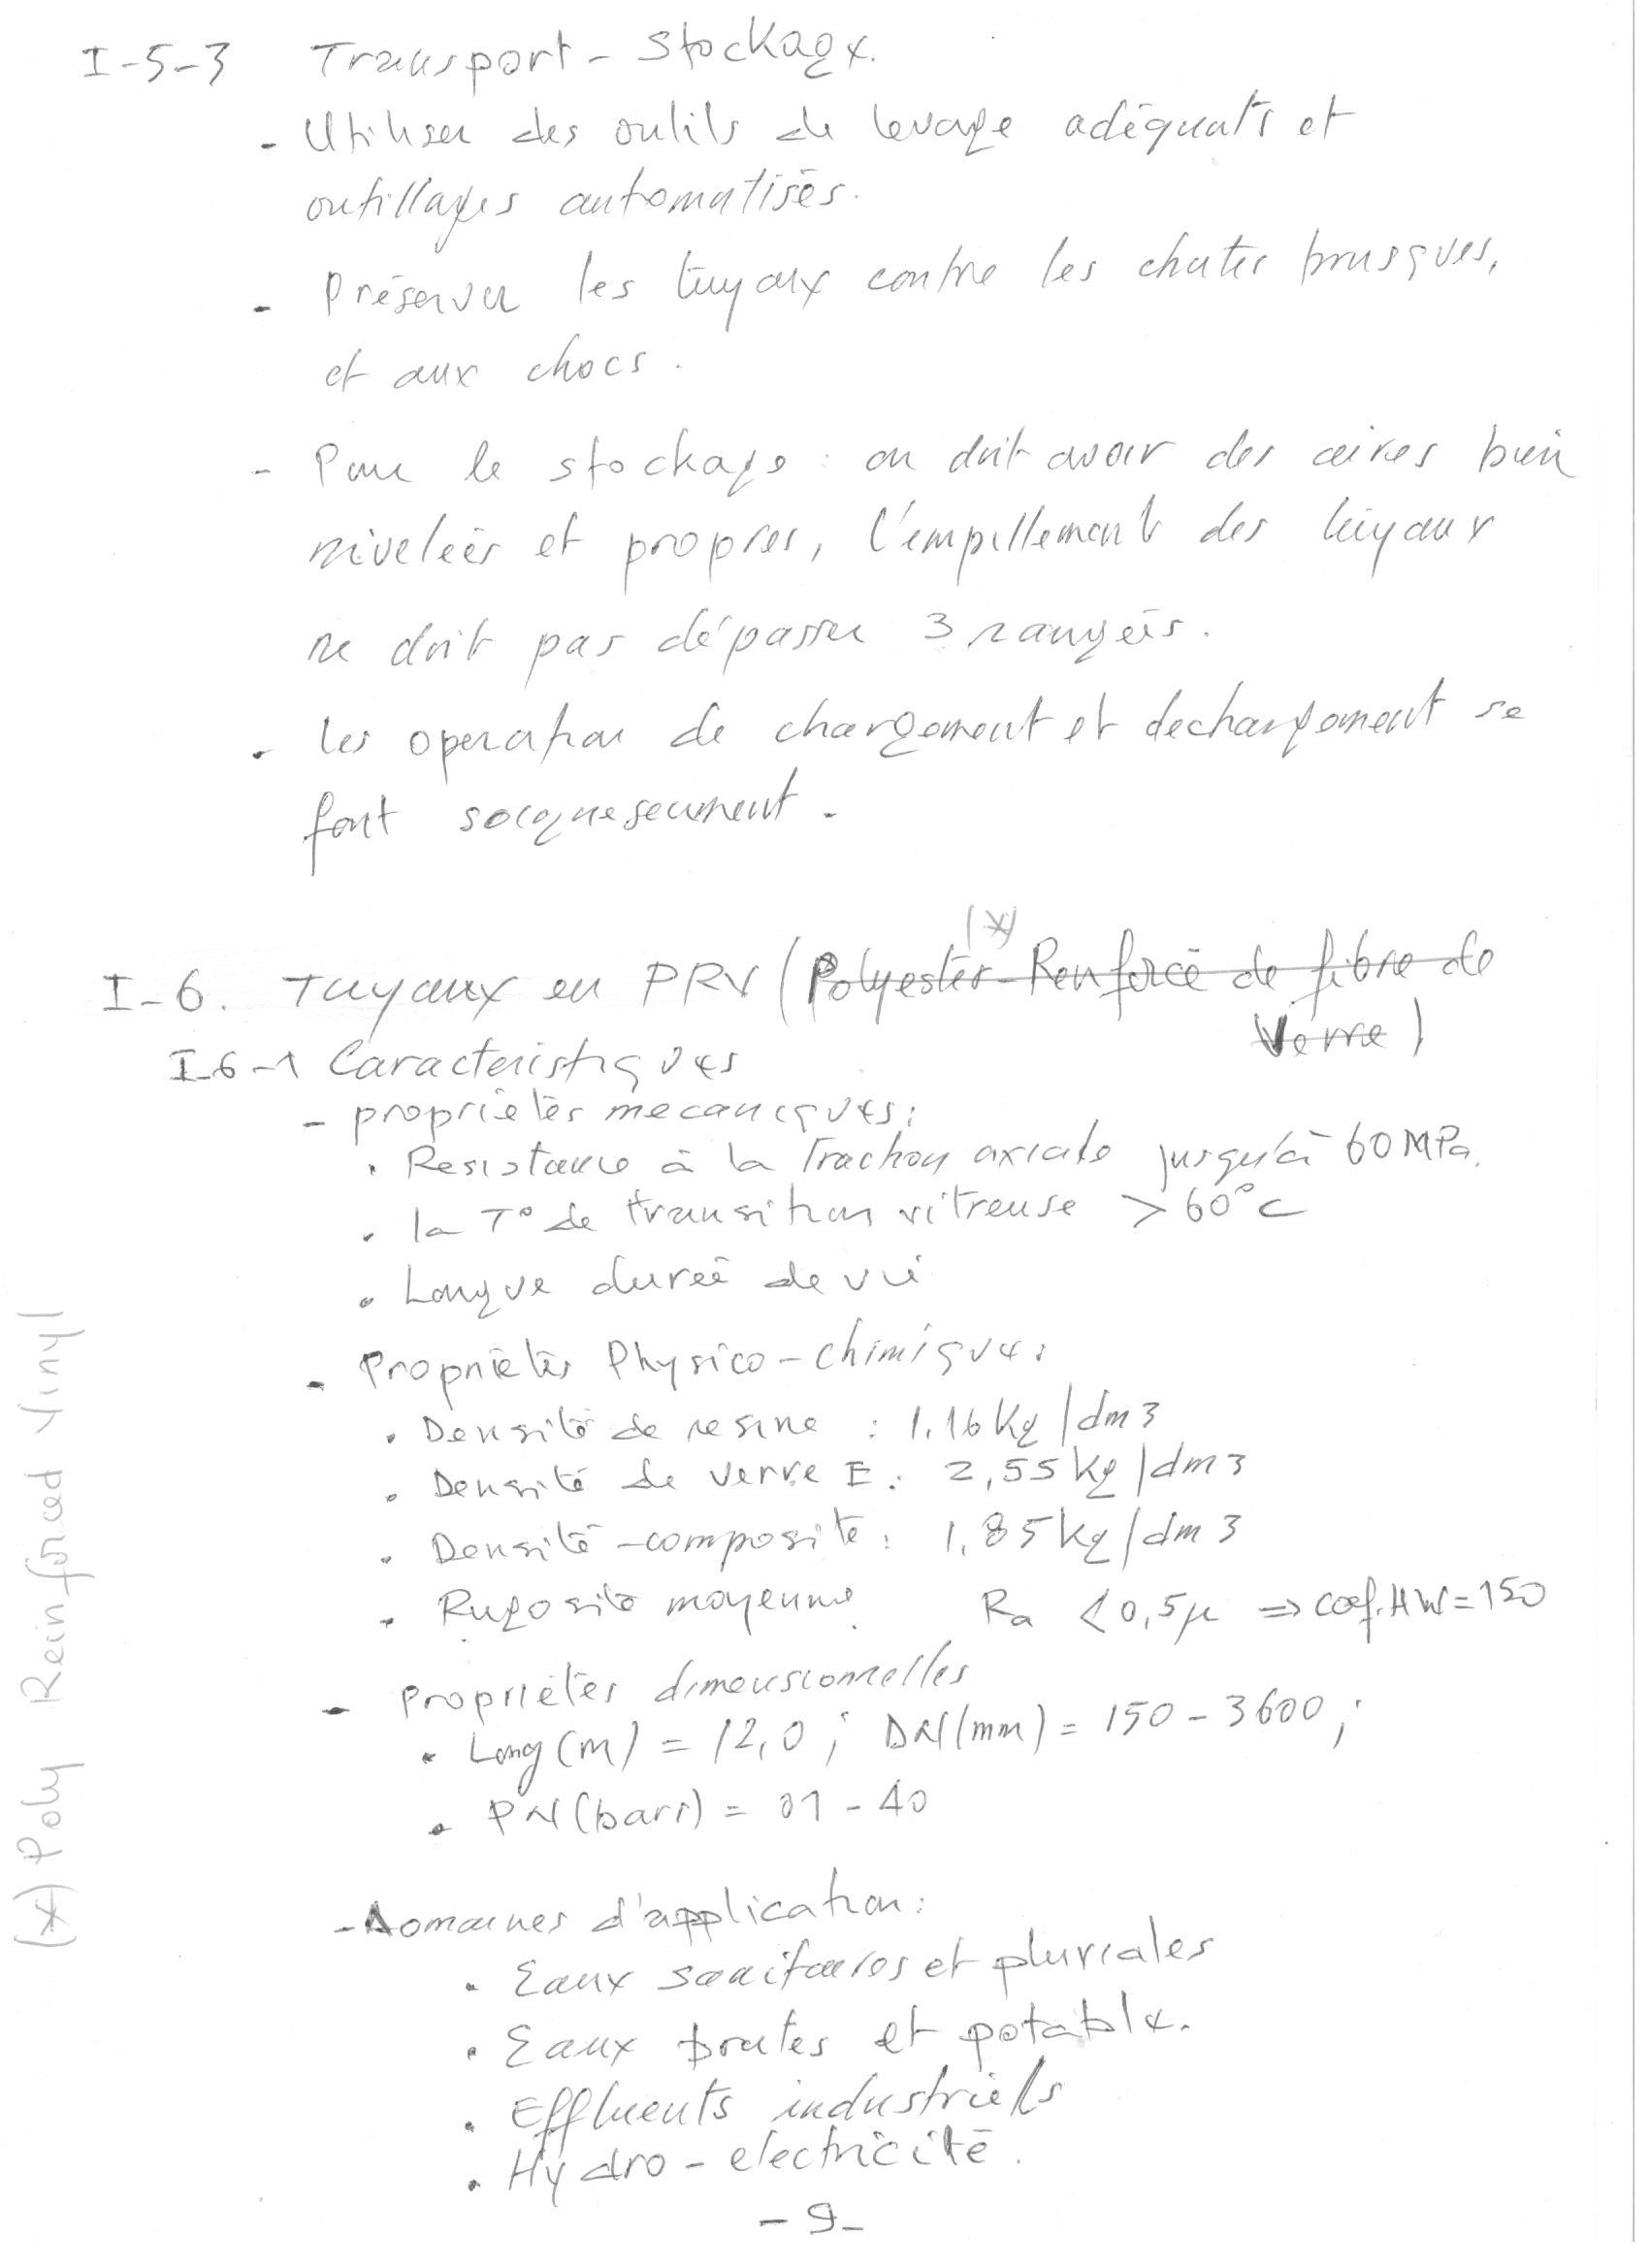 I-5-3 Transport - Stockage.
- Utiliser des outils de levage adéquats et
outillages automatisés.
- Préserver les tuyaux contre les chutes brusques,
et aux chocs.
- Pour le stockage : on doit avoir des aires bien
nivelées et propres, l'empillement des tuyaux
ne doit pas dépasser 3 rangées.
- les operation de chargement et dechargement se
font
(x)
I-6. Tuyaux en PRV (Polyester Renforcé de fibre de
Verre)
I-6-1 Caracteristiques
- proprietés mecaniques:
. Resistance à la Traction axiale jusqu'à 60 MPa.
. la T° de transition vitreuse > 60°C
. Longue durée de vie
- Propriétés Physico-chimique:
. Densité de resine : 1.16 Kg/dm3
. Densité de verre E : 2,55 kg/dm3
. Densité -composite : 1,85 kg/dm3
. Rugosité moyenne Ra < 0,5µ => coef.HW=150
- Propriétés dimensionnelles
. Long(m) = 12,0 ; DN(mm) = 150 - 3600 ;
. PN(bars) = 01 - 40
- Domaines d'application:
. Eaux sanitaires et pluviales
. Eaux brutes et potable.
. Effluents industriels
. Hydro-electricité.
- 9 -
(x) Poly Reinforced Vinyl